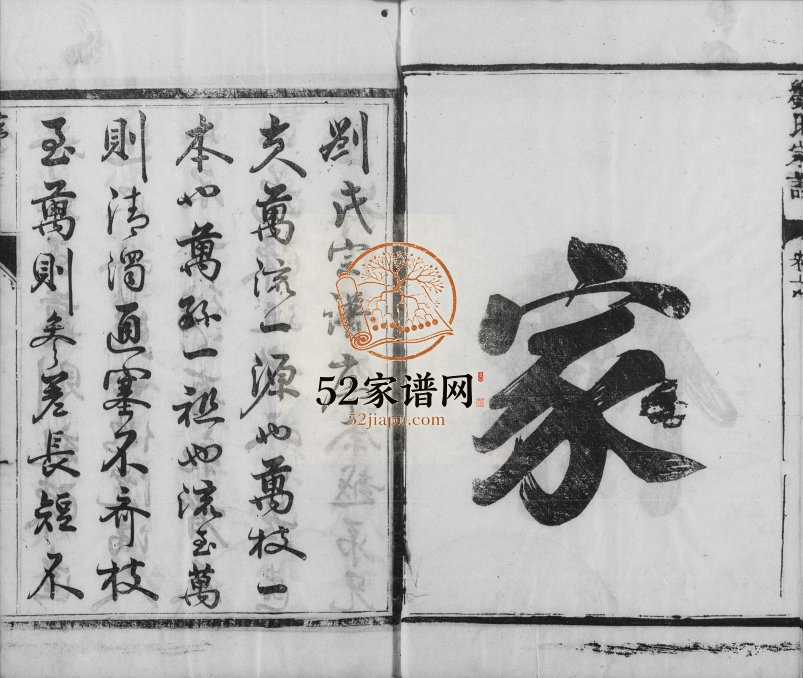 劉氏宗譜
卷
家
劉氏宗譜
夫萬流一源也萬枝一
本也萬孫一祖也流至萬
則清濁通塞不齊枝
至萬則參差長短不
52家谱网
52jiapu.com